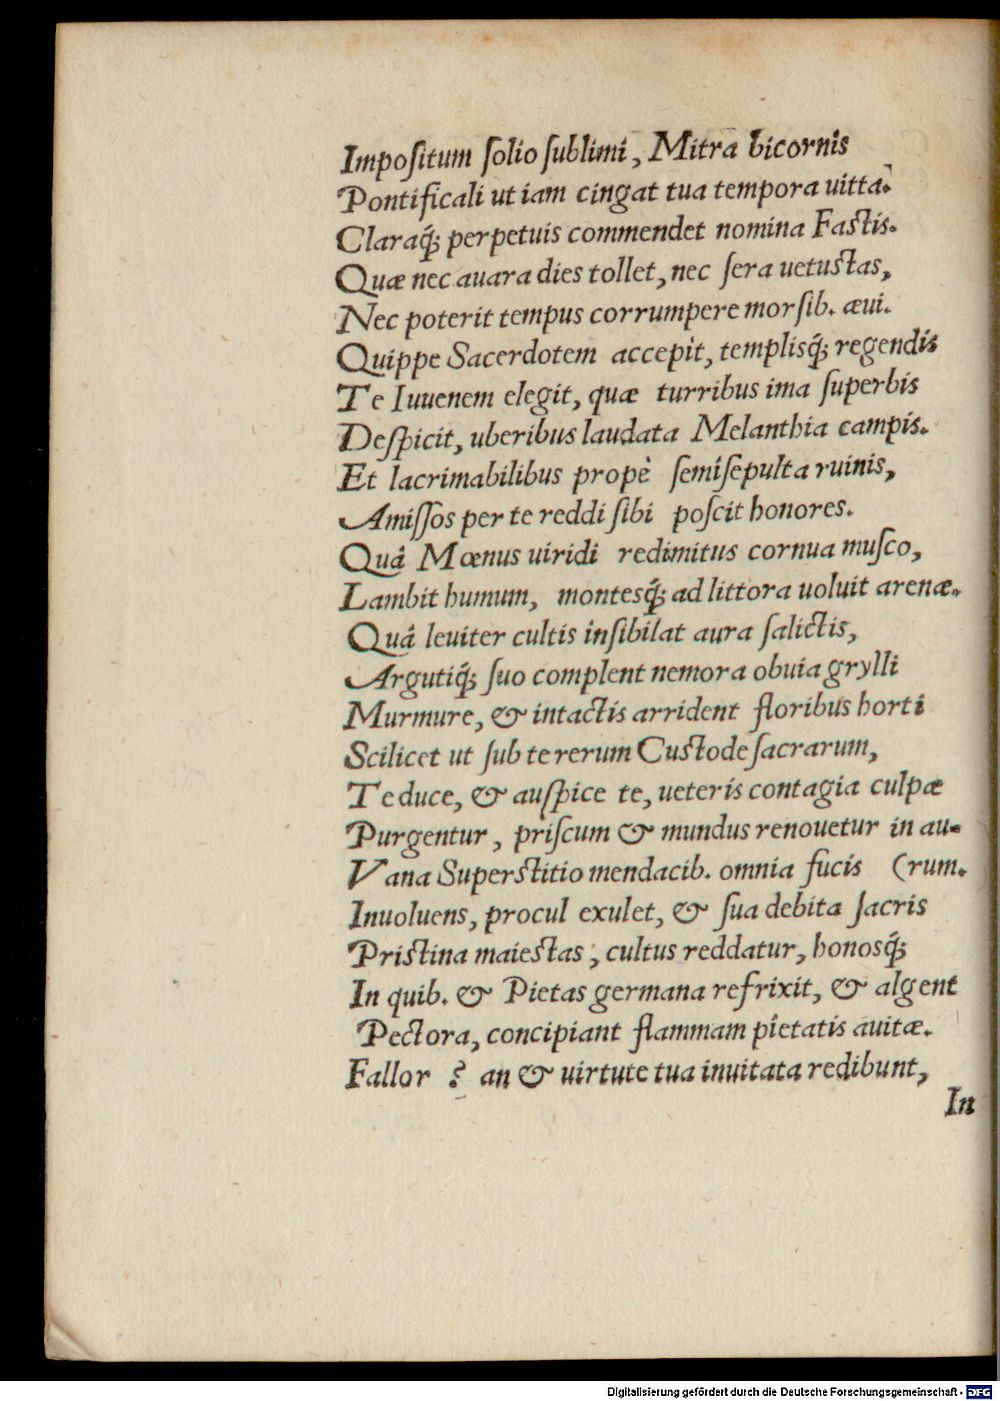 Impoſitum ſolio ſublimi, Mitra bicornis
Pontificali ut iam cingat tua tempora uitta.
Claraq́; perpetuis commendet nomina Faſtis.
Quæ nec auara dies tollet, nec ſera uetuſtas,
Nec poterit tempus corrumpere morſib. æui.
Quippe Sacerdotem accepit, templisq́; regendis
Te Iuuenem elegit, quæ turribus ima ſuperbis
Deſpicit, uberibus laudata Melanthia campis.
Et lacrimabilibus propè ſemiſepulta ruinis,
Amiſſos per te reddi ſibi poſcit honores.
Quâ Mœnus uiridi redimitus cornua muſco,
Lambit humum, montesq́; ad littora uoluit arenæ.
Quâ leuiter cultis inſibilat aura ſalictis,
Argutiq́; ſuo complent nemora obuia grylli
Murmure, & intactis arrident floribus horti
Scilicet ut ſub te rerum Cuſtode ſacrarum,
Te duce, & auſpice te, ueteris contagia culpæ
Purgentur, priſcum & mundus renouetur in au-
Vana Superſtitio mendacib. omnia fucis (rum.
Inuoluens, procul exulet, & ſua debita ſacris
Priſtina maieſtas, cultus reddatur, honosq́;
In quib. & Pietas germana refrixit, & algent
Pectora, concipiant flammam pietatis auitæ.
Fallor ? an & uirtute tua inuitata redibunt,
In
Digitalisierung gefördert durch die Deutsche Forschungsgemeinschaft - DFG